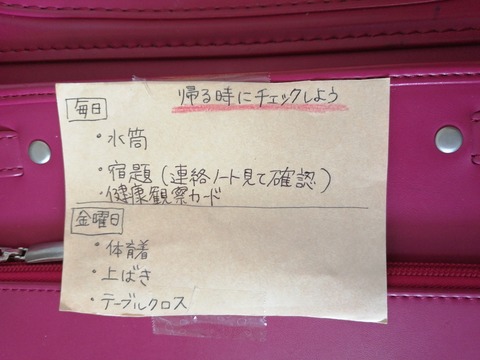 帰る時にチェックしよう
毎日
・水筒
・宿題(連絡ノート見て確認)
・健康観察カード
金曜日
・体育着
・上ばき
・テーブルクロス